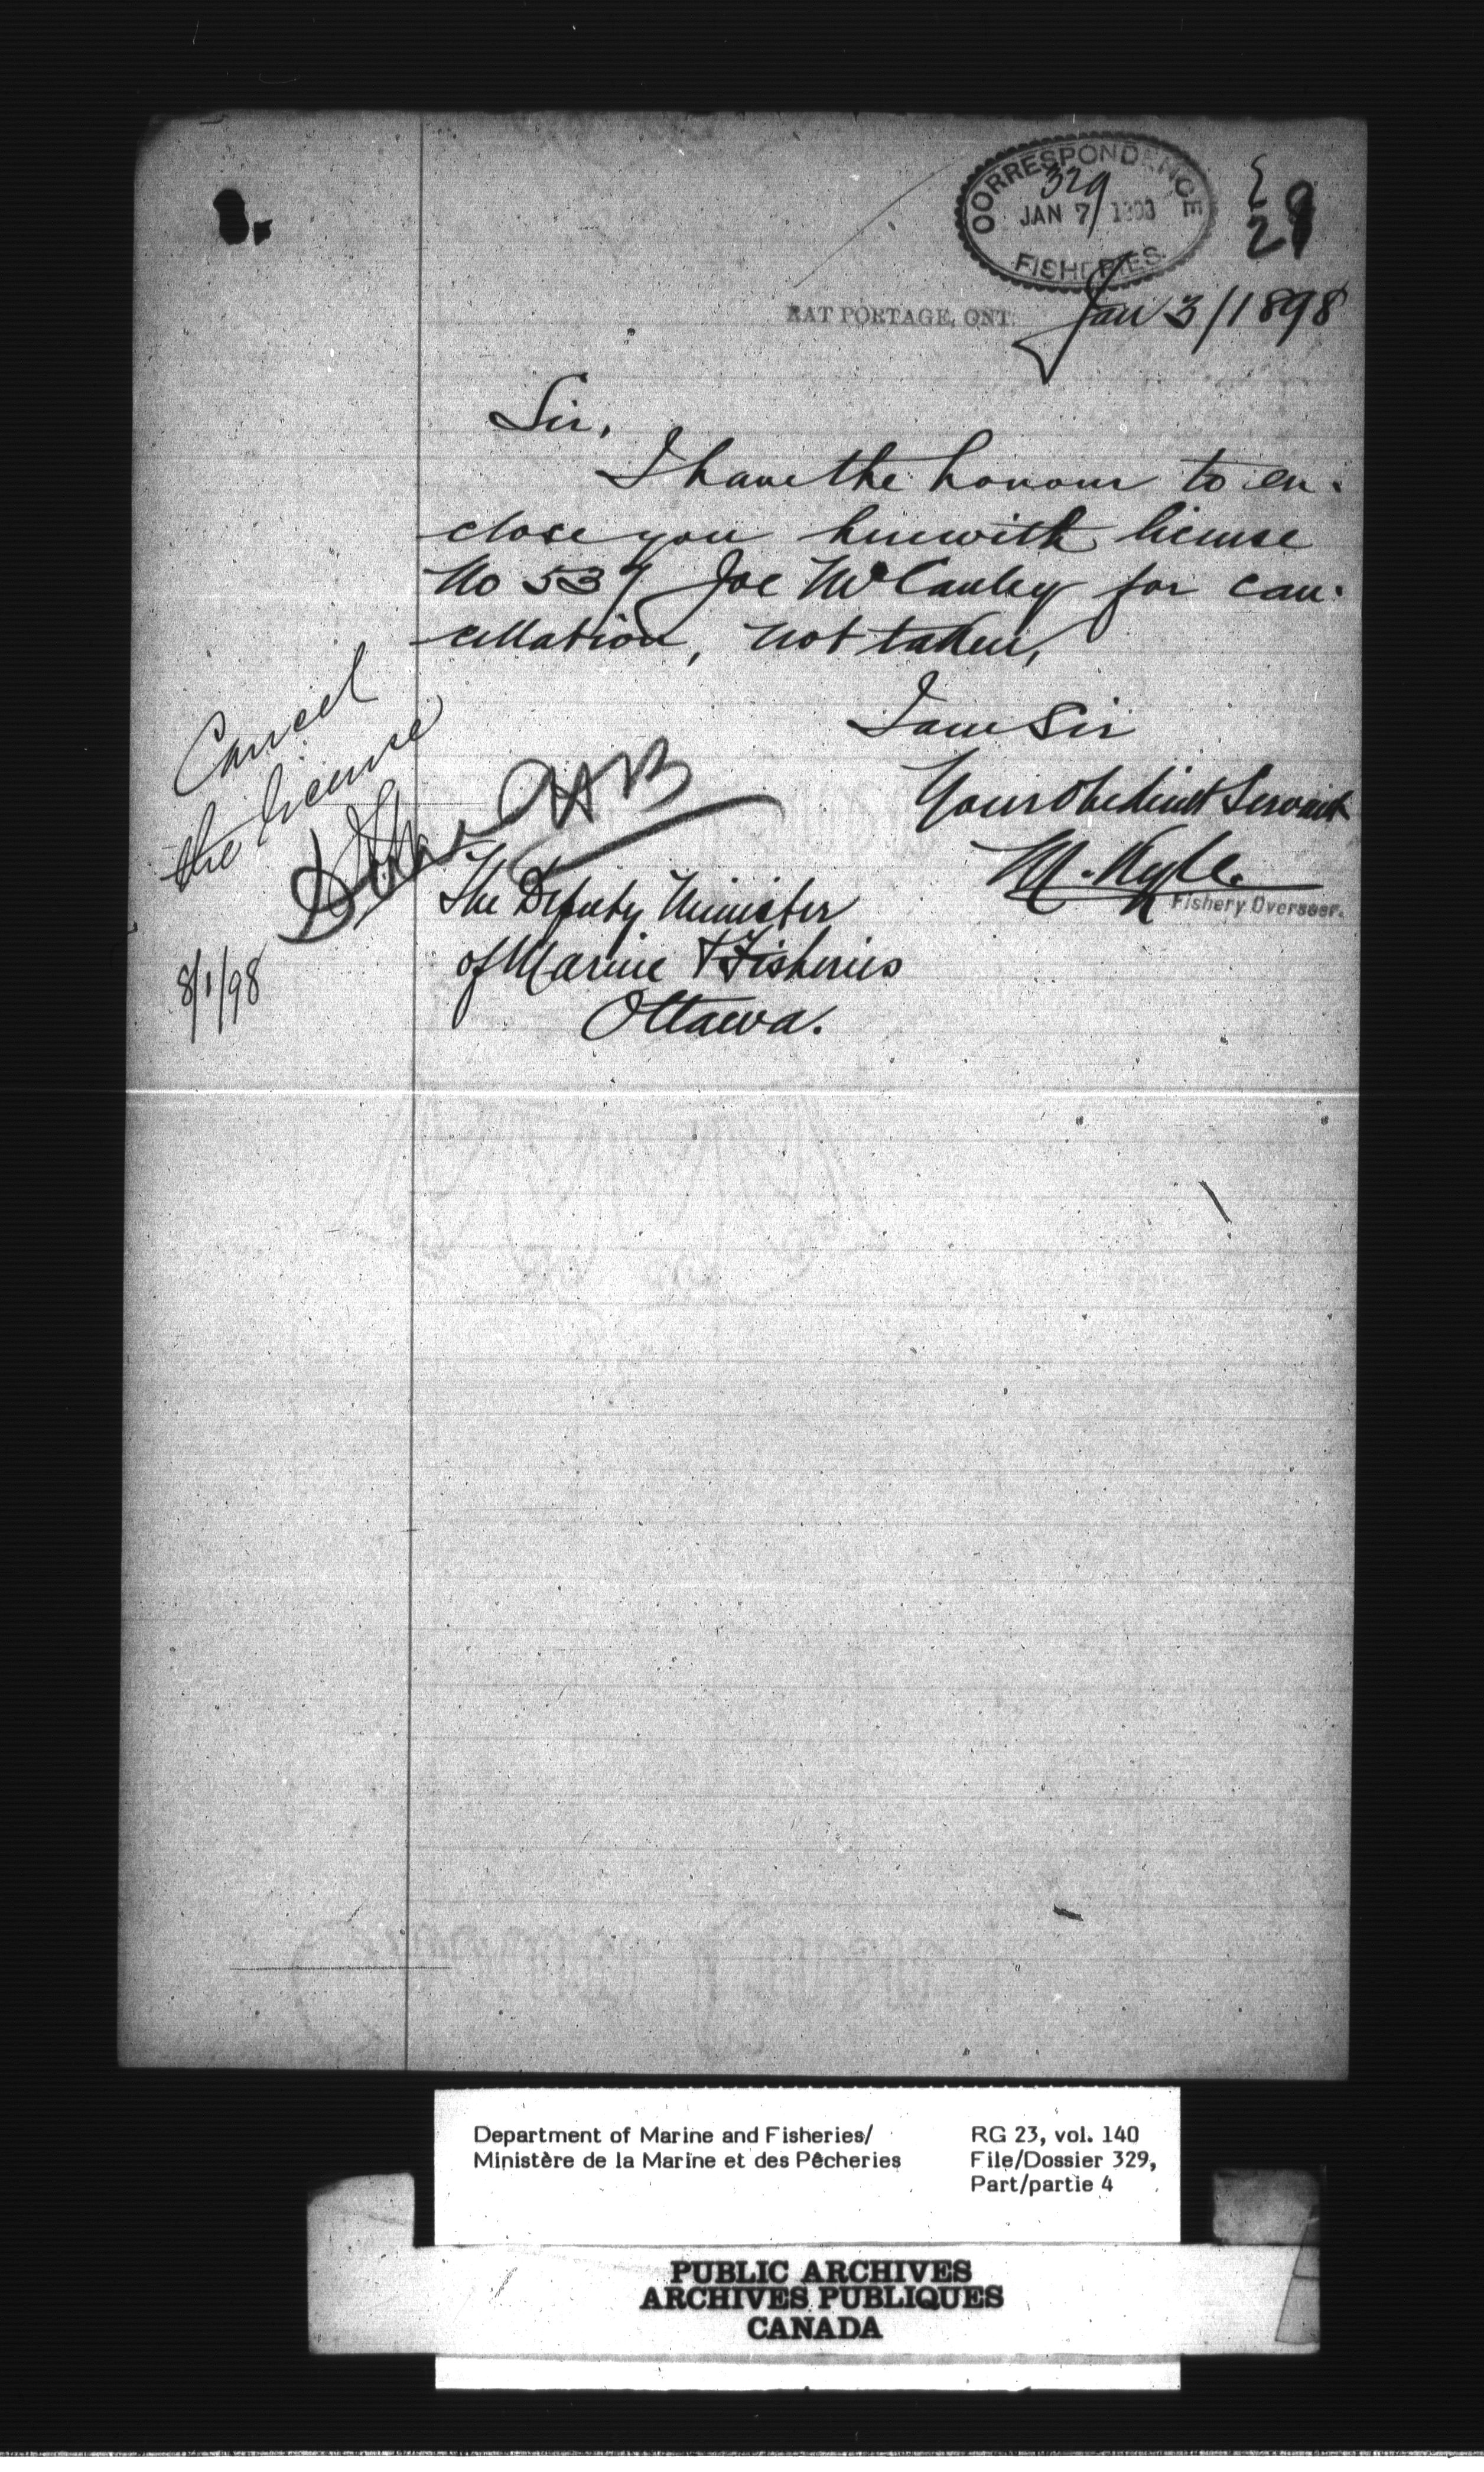 CORRESPONDENCE
329
JAN 7 1898
FISHERIES
29
RAT PORTAGE, ONT. Jan 3/1898
Sir,
I have the honour to en-
close you herewith license
No 537 Joe McCauley for can-
cellation, not taken,
I am Sir
Your Obedient Servant
M. Kyle.
Fishery Overseer.
Cancel
the license
8/1/98
The Deputy Minister
of Marine & Fisheries
Ottawa.
Department of Marine and Fisheries/
Ministère de la Marine et des Pêcheries
RG 23, vol. 140
File/Dossier 329,
Part/partie 4
PUBLIC ARCHIVES
ARCHIVES PUBLIQUES
CANADA